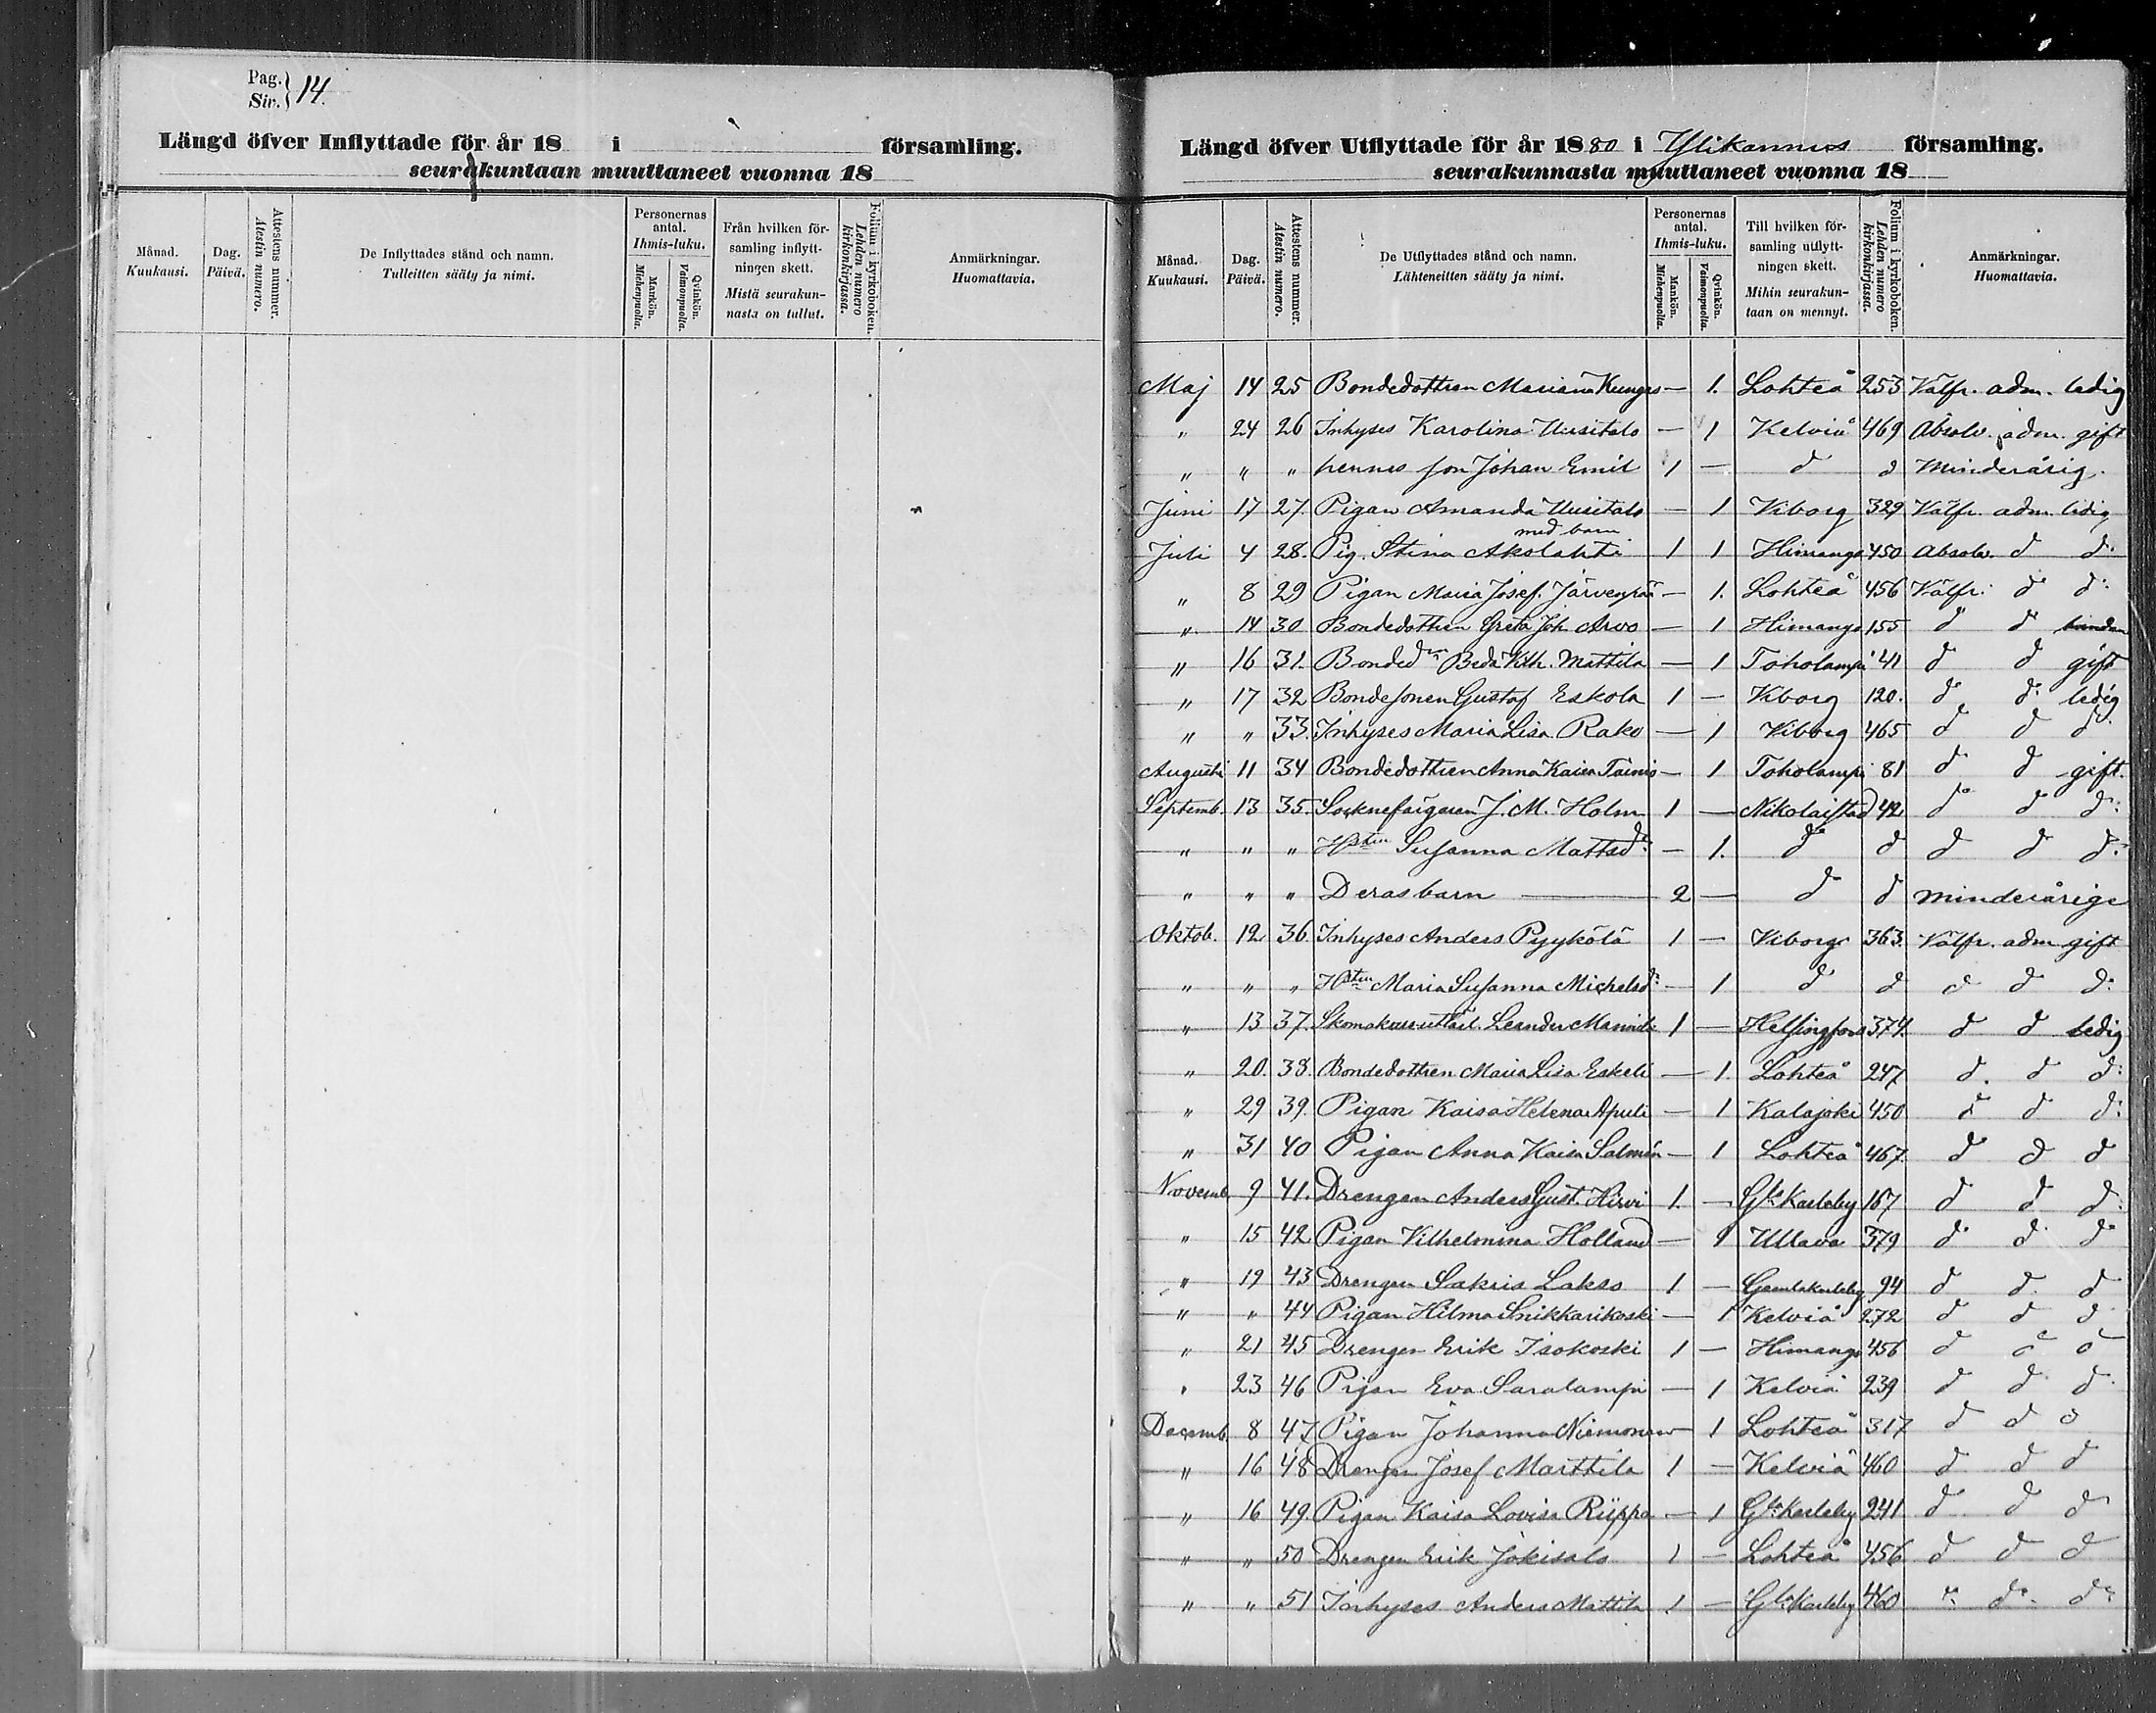 Pag. 14.
Siv.
Längd öfver Inflyttade för år 18 i församling.
seurakuntaan muuttaneet vuonna 18
Månad. Kuukausi.
Dag. Päivä.
Attestens nummer. Atestin numero.
De Inflyttades stånd och namn. Tulleitten sääty ja nimi.
Personernas antal. Ihmis-luku.
Mankön. Miehenpuolta.
Qvinkön. Vaimonpuolta.
Från hvilken för-
samling inflytt-
ningen skett.
Mistä seurakun-
nasta on tullut.
Folium i kyrkoboken. Lehden numero kirkonkirjassa.
Anmärkningar. Huomattavia.
Längd öfver Utflyttade för år 1880 i Ylikannus församling.
seurakunnasta muuttaneet vuonna 18
Månad. Kuukausi.
Dag. Päivä.
Attestens nummer. Atestin numero.
De Utflyttades stånd och namn. Lähteneitten sääty ja nimi.
Personernas antal. Ihmis-luku.
Mankön. Miehenpuolta.
Qvinkön. Vaimonpuolta.
Till hvilken för-
samling utflytt-
ningen skett.
Mihin seurakun-
taan on mennyt.
Folium i kyrkoboken. Lehden numero kirkonkirjassa.
Anmärkningar. Huomattavia.
Maj 14 25 Bondedottren Mariana Kungas — 1. Lohteå 253 Välfr. adm. ledig
" 24 26 Inhyses Karolina Uusitalo — 1 Kelviå 469 Absolv. adm. gift
" " " hennes son Johan Emil 1 — d d Minderårig.
Juni 17 27. Pigan Amanda Uusitalo — 1 Viborg 329 Välfr. adm. ledig
med barn
Juli 4 28. Pig. Stina Akolahti 1 1 Himango 450 Absolv. d d
" 8 29 Pigan Maria Josef. Järvenpää — 1. Lohteå 456 Välfr. d d
" 14 30 Bondedottren Greta Joh. Arvo — 1 Himango 155 d d
" 16 31. Bonded:n Beda Vilh. Mattila — 1 Toholampi 41 d d gift
" 17 32 Bondesonen Gustaf Eskola 1 — Viborg 120. d d ledig
" " 33. Inhyses Maria Lisa Rako — 1 Viborg 465 d d d
Augusti 11 34 Bondedottren Anna Kaisa Tainio — 1 Toholampi 81 d d gift.
Septemb. 13 35. Socknefärgaren J. M. Holm 1 — Nikolaistad 42 d d d
" " " Hstrn Susanna Mattsd: — 1. d d d d d
" " " Deras barn 2 — d d minderårige
Oktob. 12 36. Inhyses Anders Pyykölä 1 — Viborg 363. Välfr. adm gift
" " " Hstrn Maria Susanna Michelsd: — 1 d d d d d
" 13 37. Leander 1 — Helsingfors 374. d d ledig
" 20. 38. Bondedottren Maria Lisa Eskeli — 1. Lohteå 247 d. d d
" 29 39. Pigan Kaisa Helena Apuli — 1 Kalajoki 450 d d d
" 31 40 Pigan Anna Kaisa Salmén — 1 Lohteå 467. d d d
Novemb. 9 41. Drengen Anders Gust. Hirvi 1. — Gla Karleby 167 d d d
" 15 42 Pigan Vilhelmina Holland — 1 Ullava 379 d d d
" 19 43 Drengen Sakris Lakso 1 — Gamlakarleby 94 d d d
" " 44 Pigan Hilma Snikkarikoski — 1 Kelviå 272 d d d
" 21 45 Drengen Erik Isokoski 1 — Himango 456 d d d
" 23 46 Pigan Eva Saralampi — 1 Kelviå 239 d d d
Decemb. 8 47. Pigan Johanna Niemonen — 1 Lohteå 317 d d d
" 16 48 Drengen Josef Marttila 1 — Kelviå 460 d d d
" 16 49. Pigan Kaisa Lovisa Riippa — 1 Gla Karleby 241 d d d
" " 50 Drengen Erik Jokisalo 1 — Lohteå 456 d d d
" " 51 Inhyses Anders Mattila 1 — Gla Karleby 460 " d d